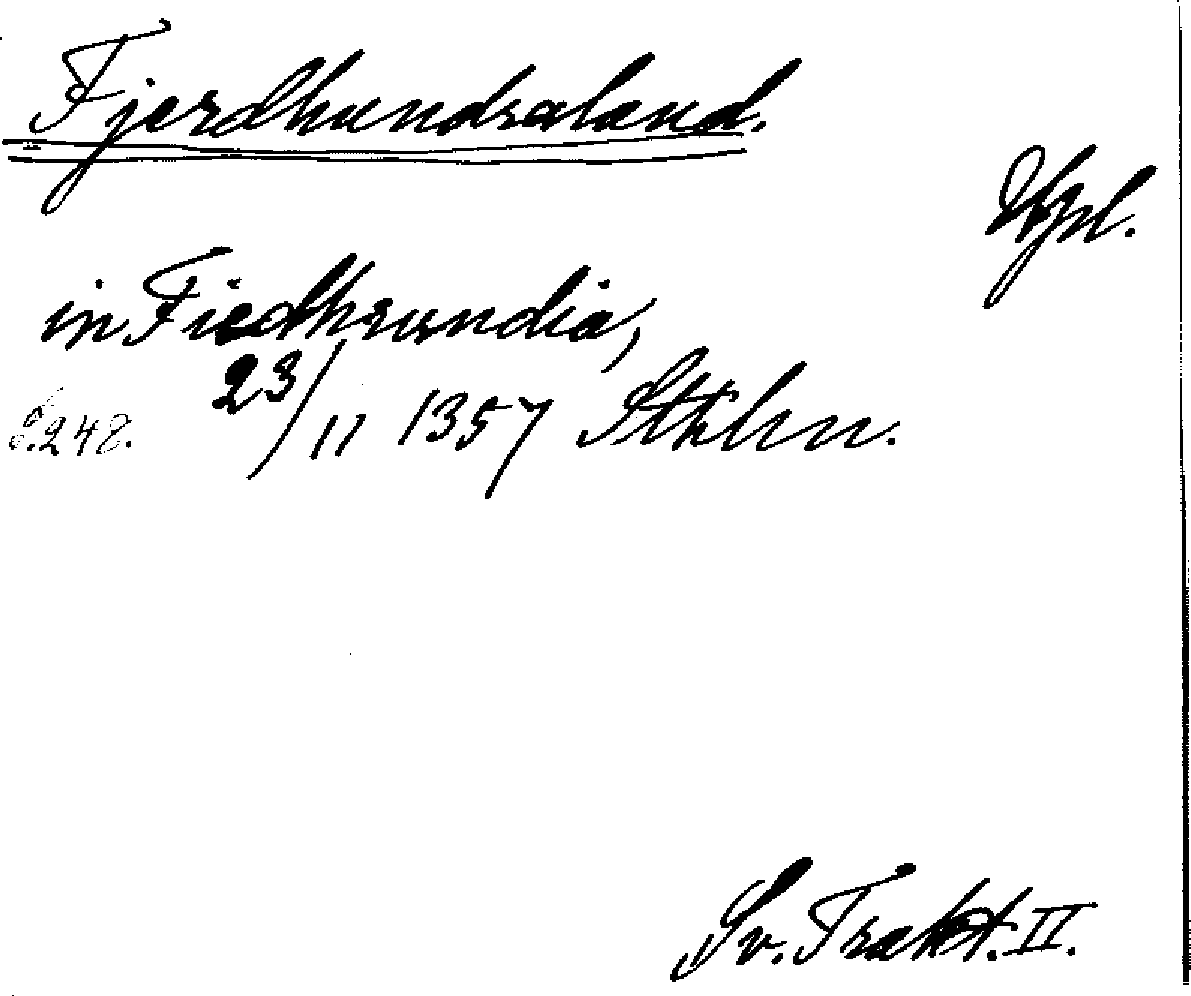 Fjerdhundraland.
Upl.
in Fiedhrundia,
S. 248. 23/11 1357 Sthlm.
Sv. Trakt. II.